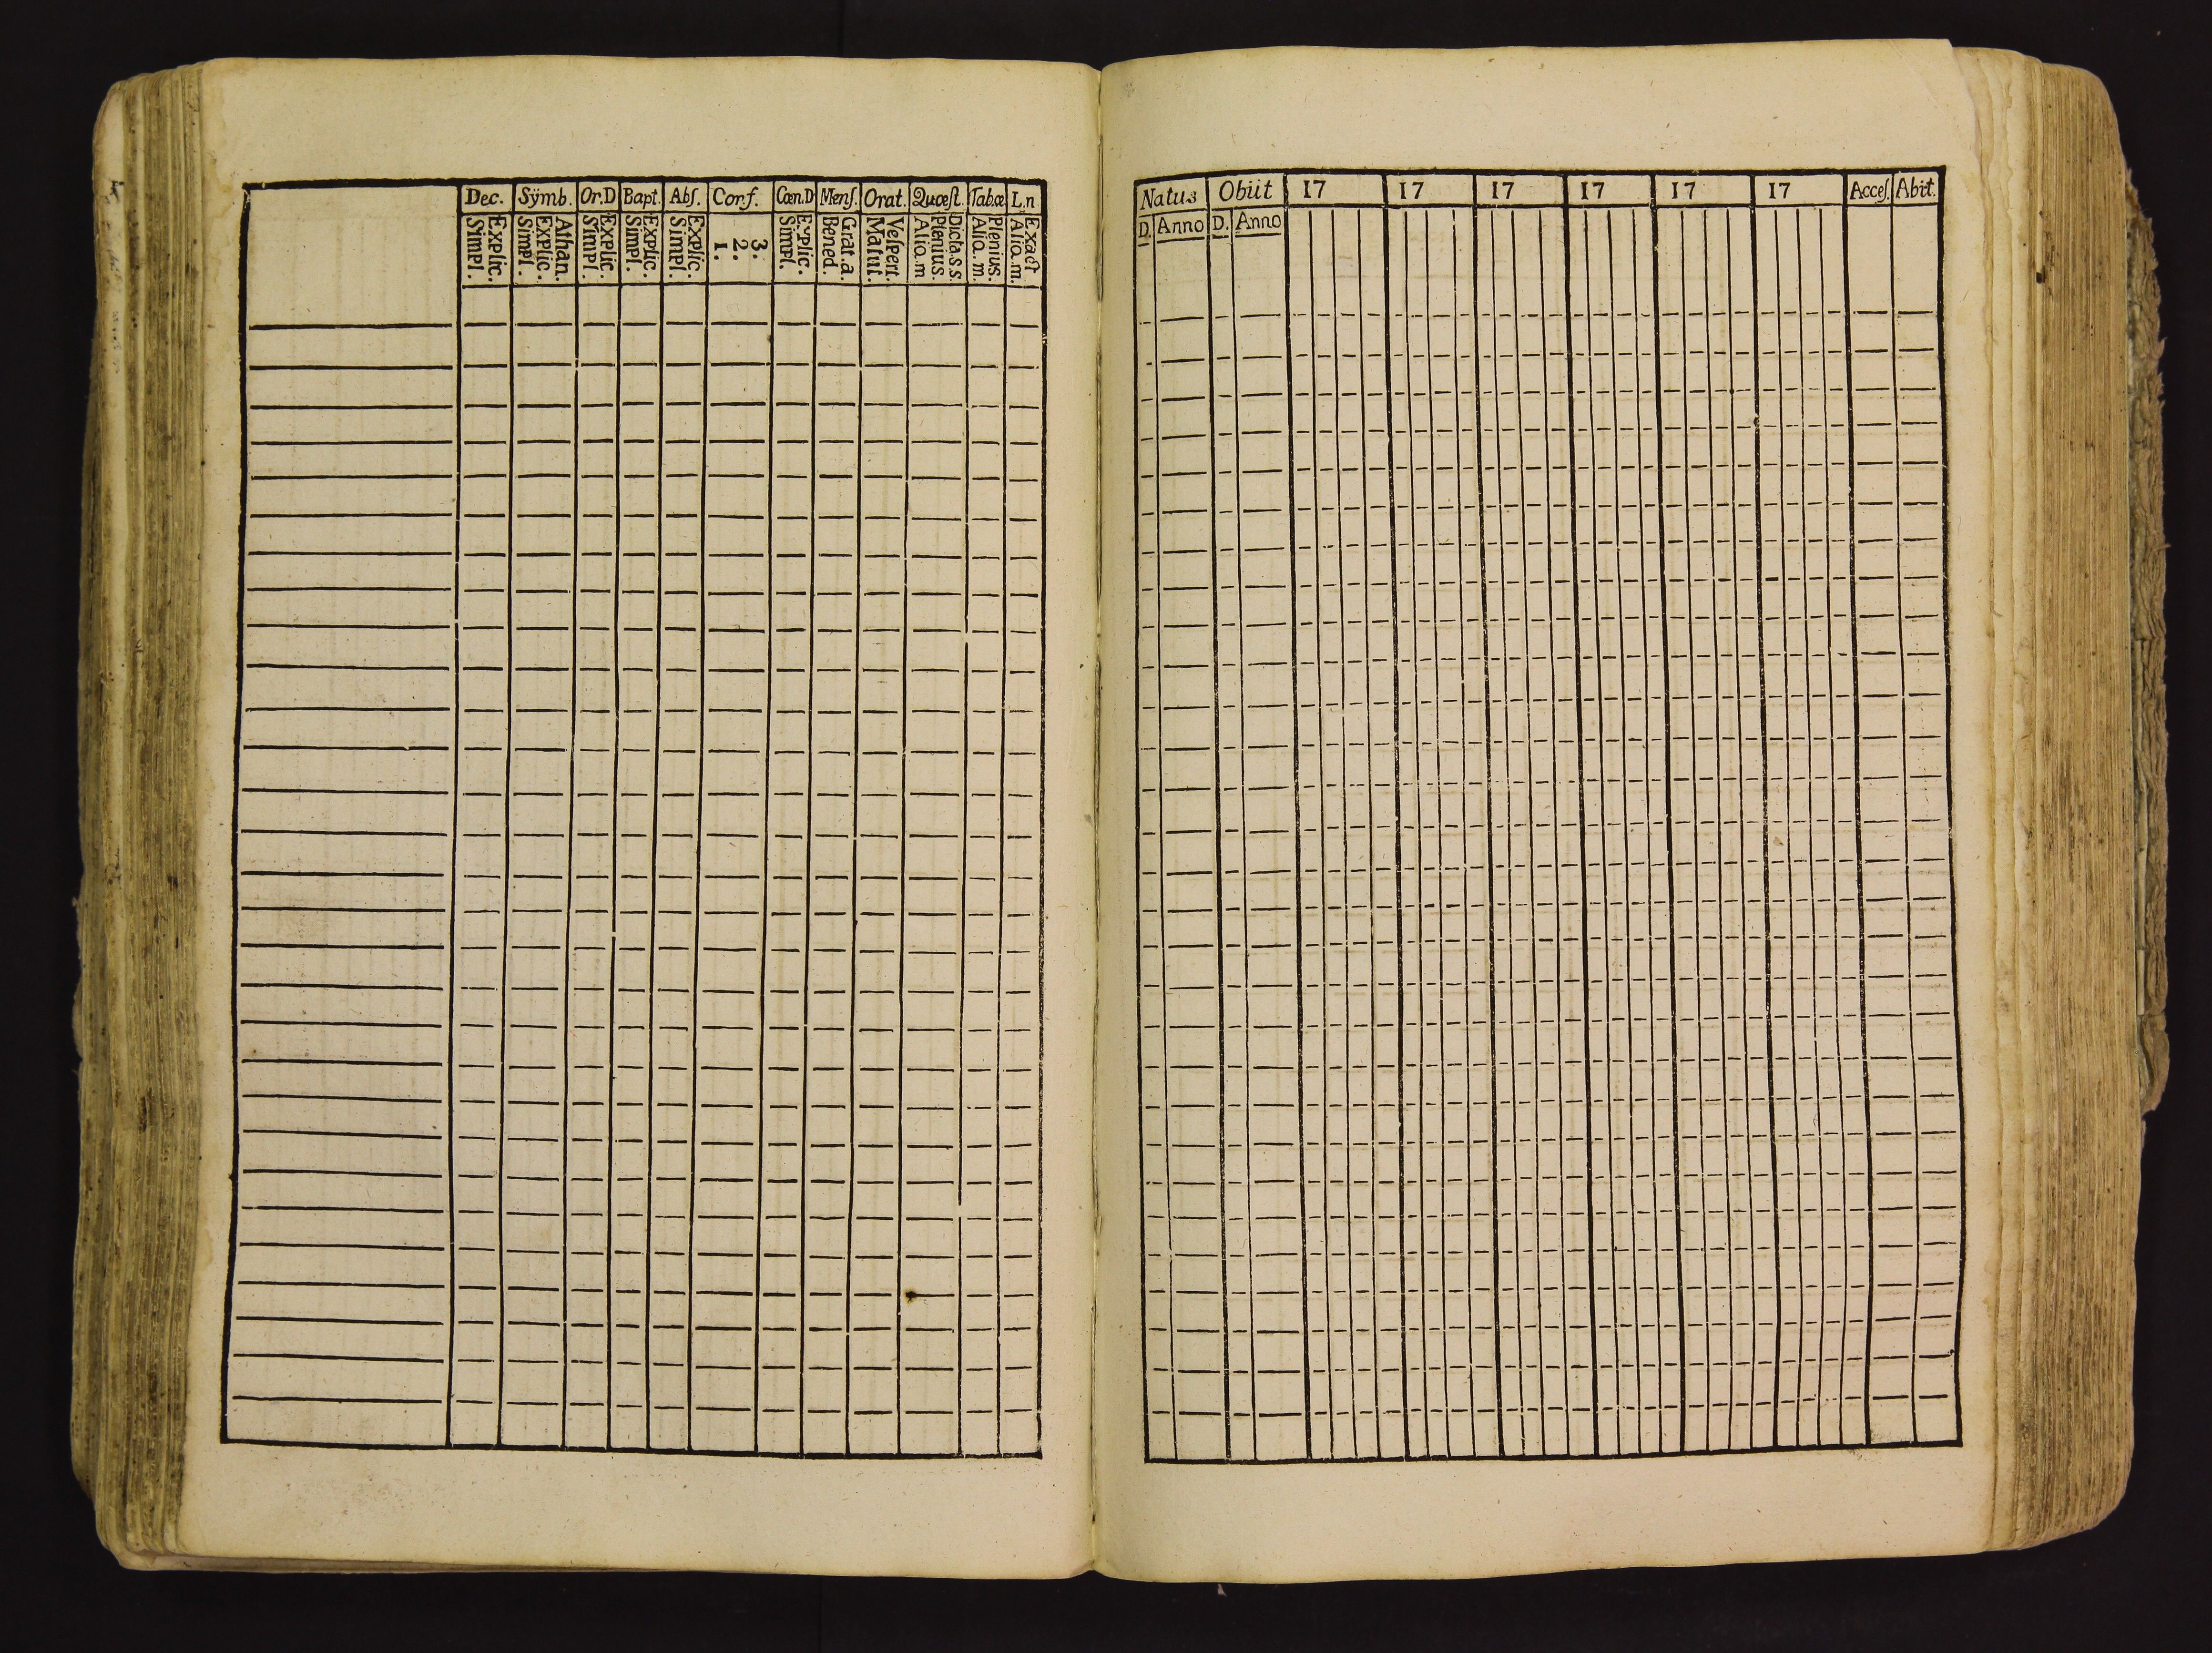 Dec. Sÿmb. Or.D Bapt. Abſ. Conf. Cœn.D Menſ. Orat. Quæſt. Tab.æ L.n
Explic.
Simpl.
Athan.
Explic.
Simpl.
Explic.
Simpl.
Explic.
Simpl.
Explic.
Simpl.
3.
2.
1.
Explic.
Simpl.
Grat.a.
Bened.
Veſpert.
Matut.
Dicta.s s
Plenius.
Aliq.m
Plenius.
Aliq.m.
Exact
Aliq.m.
Natus Obiit 17 17 17 17 17 17 Acceſ. Abit.
D. Anno D. Anno